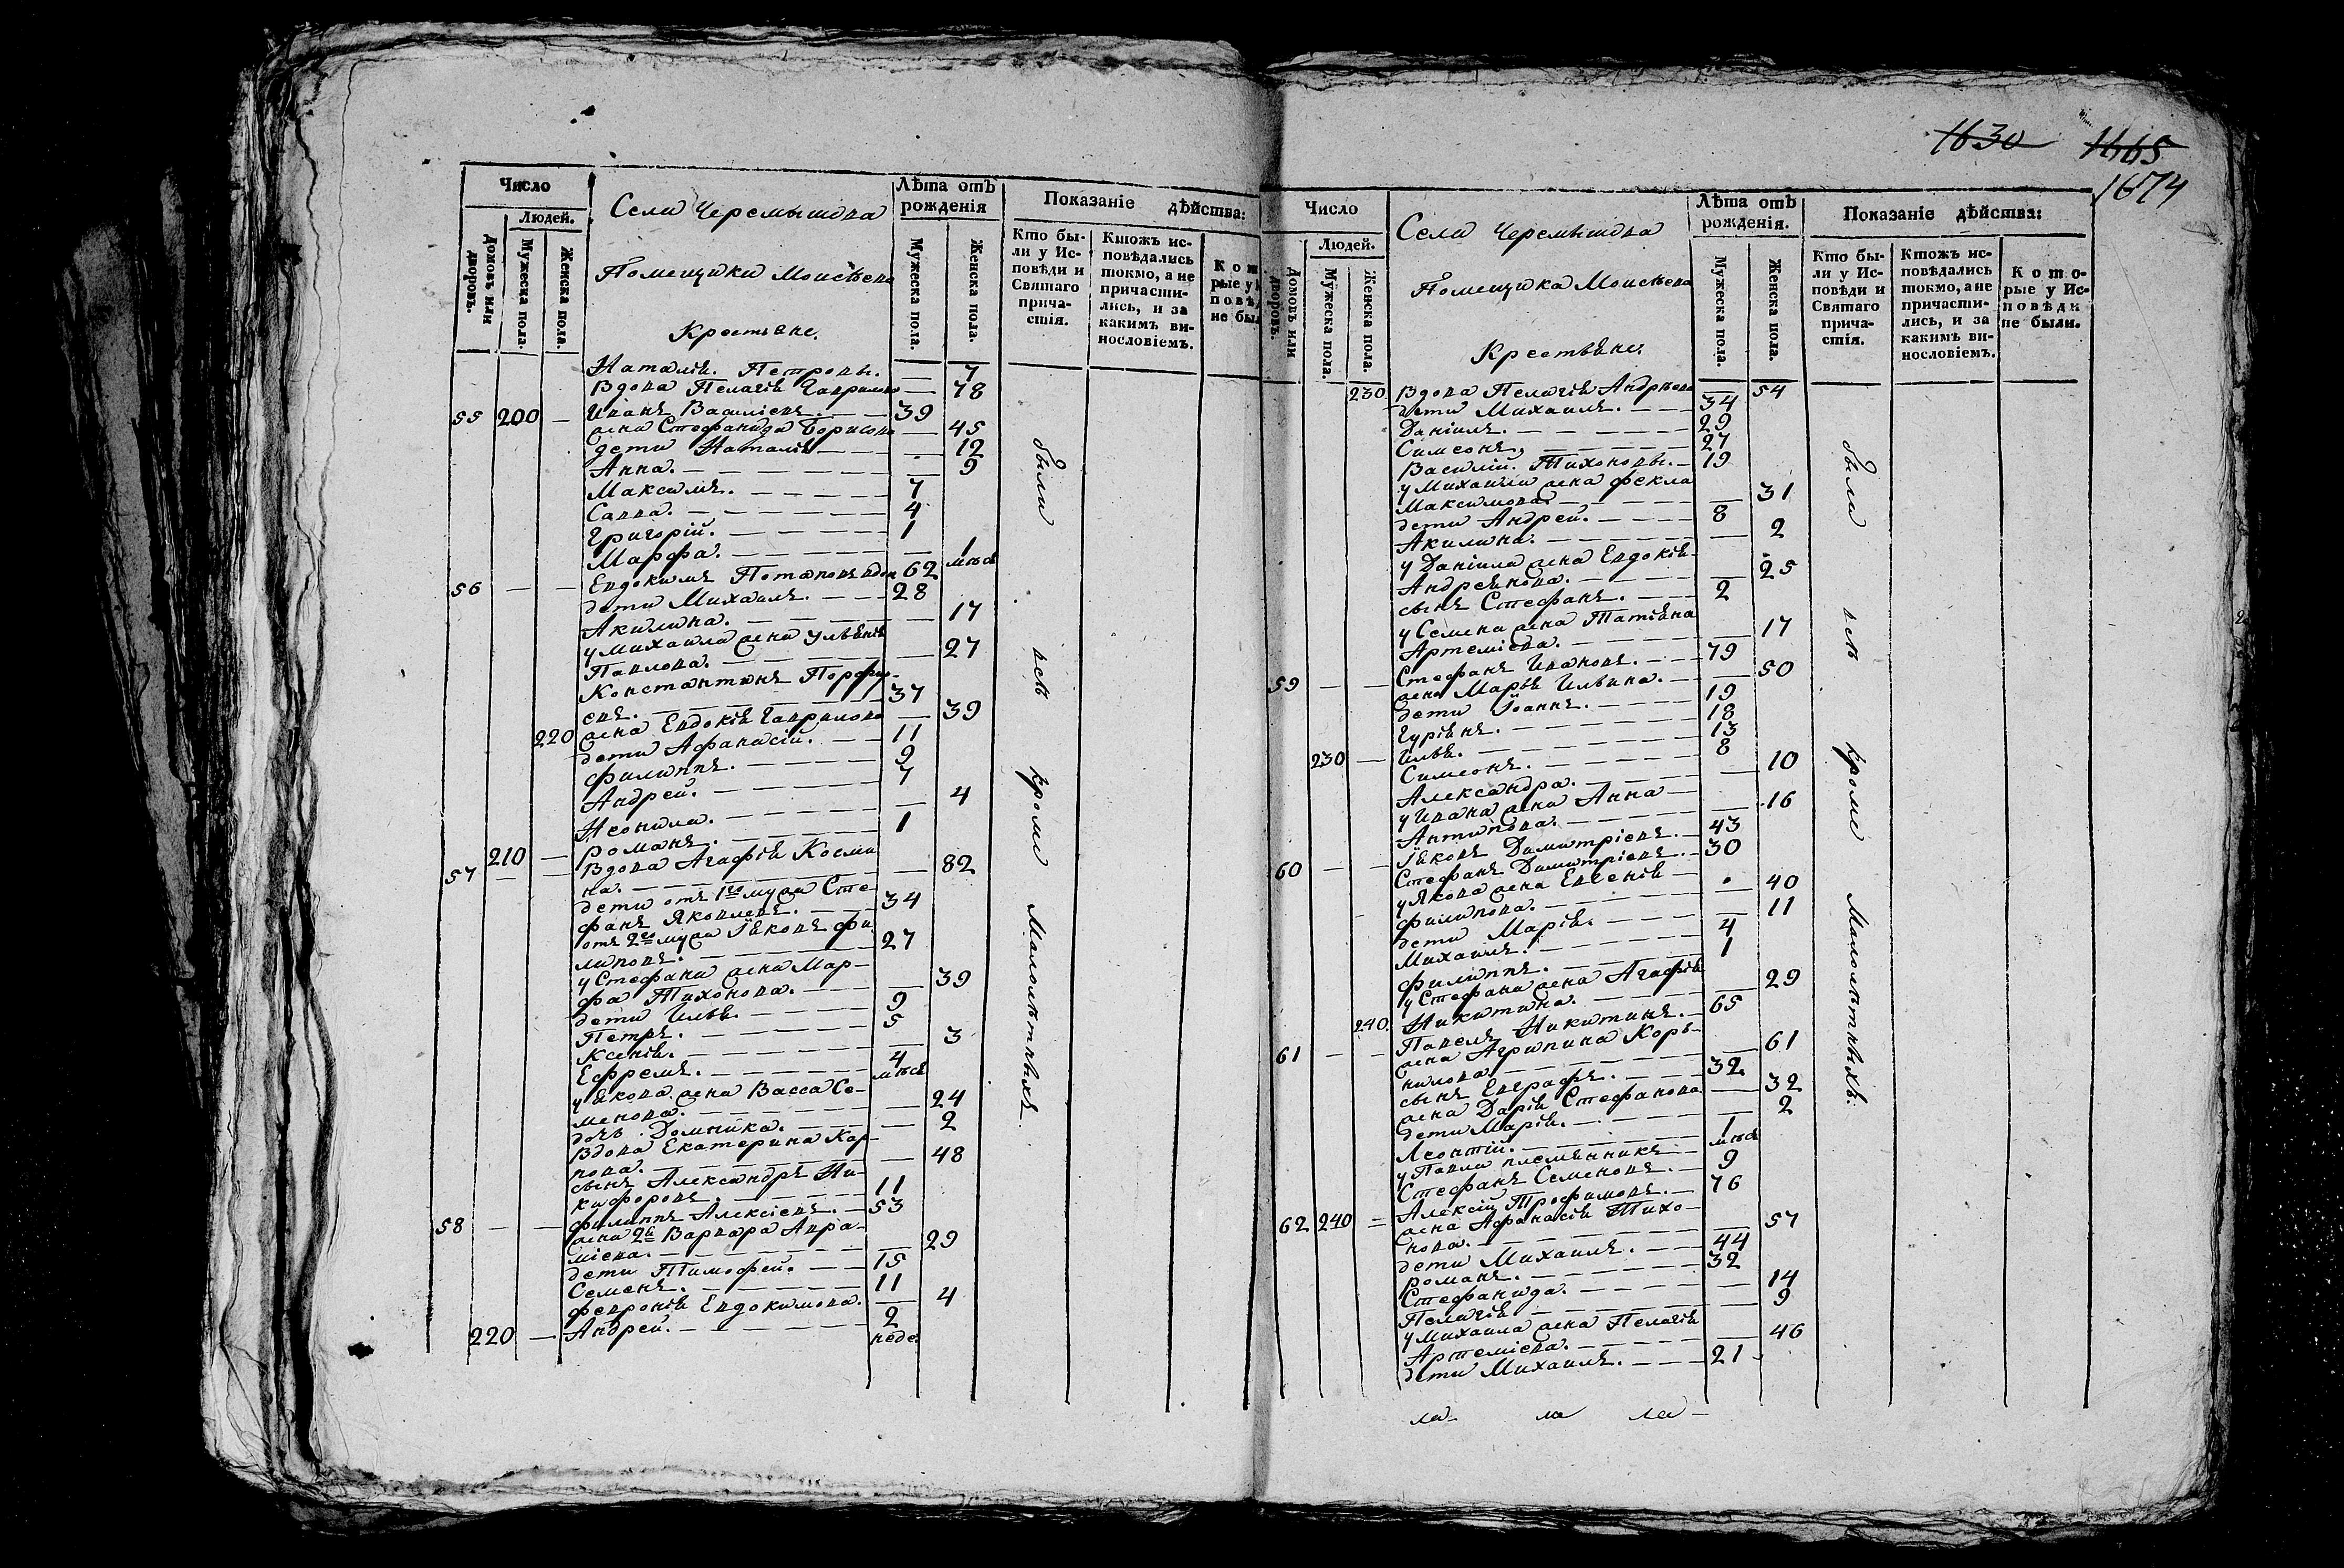 1630 1665
1674
Число
Людей.
Домовъ или дворовъ.
Мужеска пола.
Женска пола.
Села Черемышова
Помещика Моисѣева
Крестьяне.
Лѣта отъ рожденія
Мужеска пола.
Женска пола.
Показаніе дѣйства:
Кто бы-
ли у Ис-
повѣди и
Святаго
прича-
стія.
Ктожъ ис-
повѣдались
токмо, а не
причасти-
лись, и за
какимъ ви-
нословіемъ.
Кот
рые у
повѣ
не был
Наталія. Петровы. — 7
Вдова Пелагія Гаврилова — 78
55 200 — Иванъ Василіевъ. — — 39
жена Стефанида Борисова — 45
дети Наталія — — — 12
Анна. — — — — — 9
Максимъ. — — — — 7
Савва. — — — — — 4
Григорій. — — — — 1
Марфа. — — — — — 1 мѣся
56 — — Евдокимъ Потаповъ вдов 62
дети Михаилъ. — — — 28
Акилина. — — — — — 17
у Михаила жена Ульянія
Павлова. — — — — — 27
Константинъ Порфир-
евъ. — — — — — 37
220 жена Евдокія Гаврилова — 39
дети Афанасій. — — 11
Филиппъ. — — — — 9
Андрей. — — — — — 7
Неонила. — — — — — 4
210 — Романъ. — — — — 1
57 — — Вдова Агафія Косми
на. — — — — — — 82
дети отъ 1го мужа Сте-
фанъ Яковлевъ. — — 34
отъ 2го мужа Іяковъ Фи
липовъ. — — — — 27
у Стефана жена Мар-
фа Тихонова. — — — 39
дети Илья. — — — — 9
Петръ. — — — — — 5
Ксенія. — — — — — 3
Ефремъ. — — — — — 4 мѣся
у Якова жена Васса Се-
менова. — — — — — 24
дочь Домника. — — — 2
Вдова Екатерина Кар-
пова. — — — — — — 48
сынъ Александръ Ни-
кифоровъ. — — — — 11
58 — — Филиппъ Алексіевъ. — 53
жена 2я Варвара Авра-
міева. — — — — — — 29
дети Тимофей. — — 15
Семенъ. — — — — — 11
Феврónія Евдокимова. — 4
220 — Андрей. — — — — — 2 неде
были всѣ кроме Малолѣтныхъ
Число
Людей.
Домовъ или дворовъ.
Мужеска пола.
Женска пола.
Села Черемышова
Помещика Моисѣева
Крестьяне.
Лѣта отъ рожденія.
Мужеска пола.
Женска пола.
Показаніе дѣйства:
Кто бы-
ли у Ис-
повѣди и
Святаго
прича-
стія.
Ктожъ ис-
повѣдались
токмо, а не
причасти-
лись, и за
какимъ ви-
нословіемъ.
Кото-
рые у Ис-
повѣди
не были.
230 Вдова Пелагія Андрѣева — 54
дети Михаилъ. — — — 34
Даніилъ. — — — — — 29
Симеонъ, — — — — 27
Василій. Тихоновы. — 19
у Михаила жена Фекла
Максимова. — — — — 31
дети Андрей. — — — 8
Акилина. — — — — — 2
у Даніила жена Евдокія
Андреянова. — — — — 25
сынъ Стефанъ. — — — 2
у Семена жена Татіяна
Артеміева. — — — — 17
59 — — Стефанъ Ивановъ. — — 79
жена Марья Ильина. — — 50
дети Іоаннъ. — — — — 19
Гуріянъ. — — — — — 18
230 — Илья. — — — — — 13
Симеонъ. — — — — — 8
Александра. — — — — 10
у Ивана жена Анна —
Антипова. — — — — 16
60 — — Іяковъ Димитріевъ. — 43
Стефанъ Димитріевъ. — 30
у Якова жена Евгенія —
Филипова. — — — — 40
дети Марія. — — — — 11
Михаилъ. — — — — — 4
Филиппъ. — — — — — 1
у Стефана жена Агафія
240. Никитина. — — — — 29
61 — — Павелъ Никитинъ. — 65
жена Агрипина Кор-
нилова — — — — — 61
сынъ Евграфъ. — — — 32
жена Дарія Стефанова — 32
дети Марія. — — — — 2
Леонтій. — — — — — 1 мѣся
у Павла племянникъ —
Стефанъ Семеновъ. — 9
62 240 — Алексій Трофимовъ. — 76
жена Афанасія Тихо-
нова. — — — — — — 57
дети Михаилъ. — — — 44
Романъ. — — — — — 32
Стефанида. — — — — 14
Пелагія — — — — — 9
у Михаила жена Пелагія
Артеміева. — — — — 46
дети Михаилъ. — — — 21
были всѣ кроме Малолѣтныхъ.